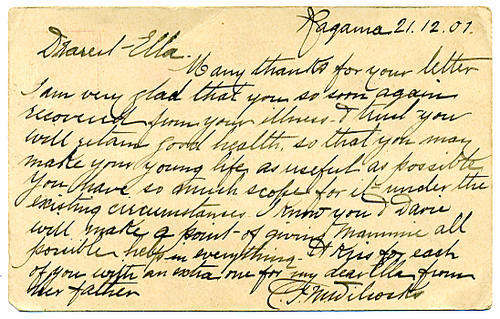 Ragama 21.12.01.
Dearest Ella.
Many thanks for your letter
I am very glad that you so soon again
recovered from your illness. I trust you
will retain good health, so that you may
make your young life as useful as possible
You have so much scope for it under the
existing circumstances. I know you & Davie
will make a point of giving Mammie all
possible help in everything. A kiss for each
of you with an extra one for my dear Ella from
her father